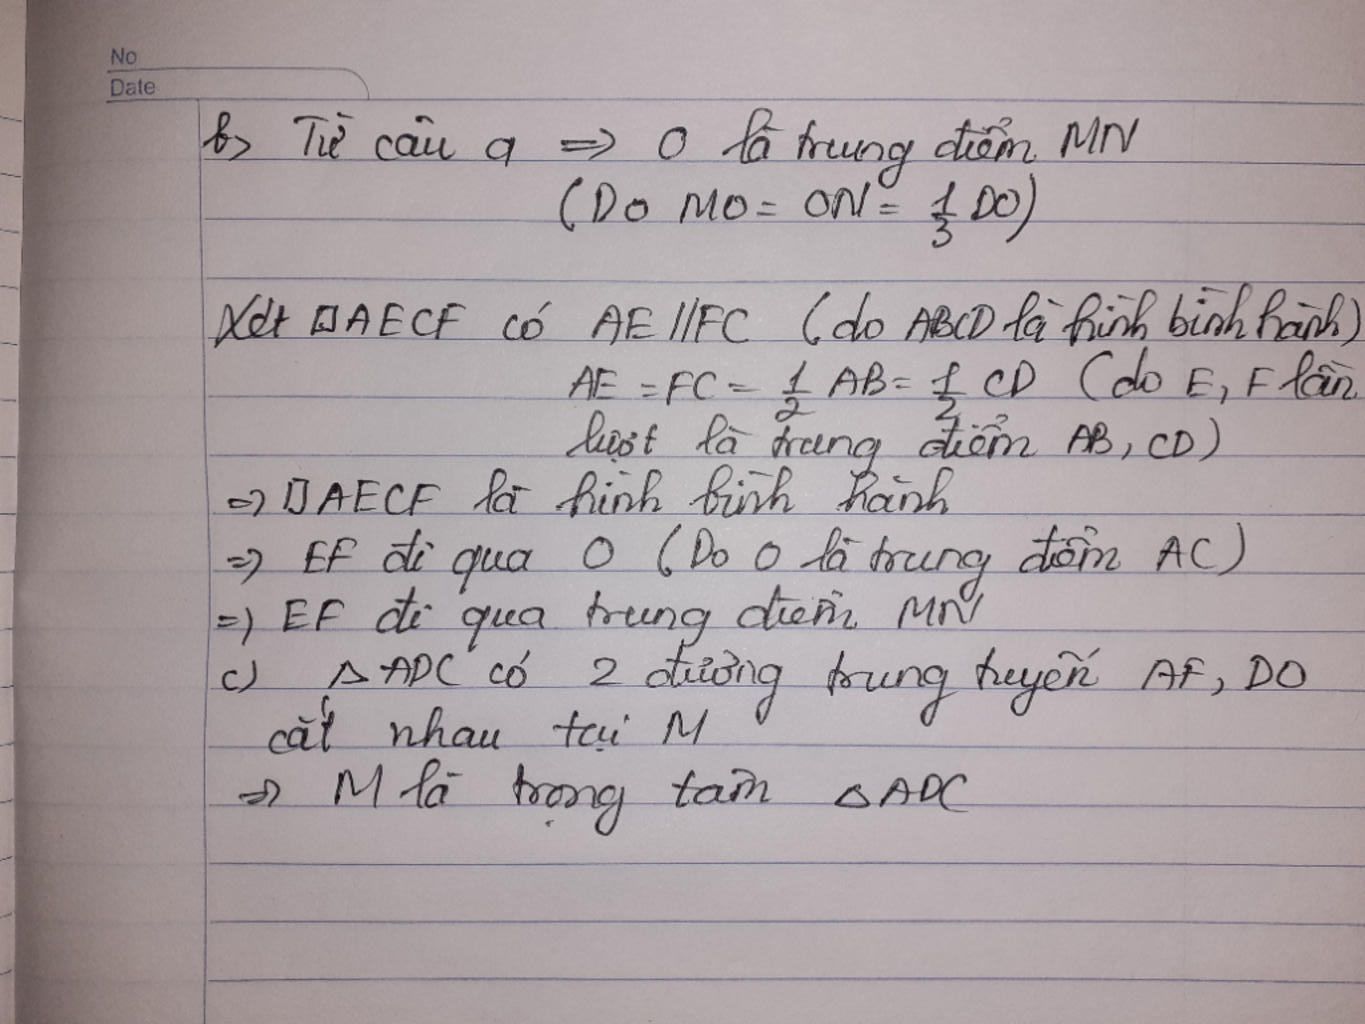 No
Date
b> Từ câu a => O là trung điểm MN
(Do MO = ON = 1/3 DO)
Xét □AECF có AE//FC (do ABCD là hình bình hành)
AE = FC = 1/2 AB = 1/2 CD (do E, F lần
lượt là trung điểm AB, CD)
=> □AECF là hình bình hành
=> EF đi qua O (Do O là trung điểm AC)
=> EF đi qua trung điểm MN
c) △ADC có 2 đường trung tuyến AF, DO
cắt nhau tại M
=> M là trọng tâm △ADC